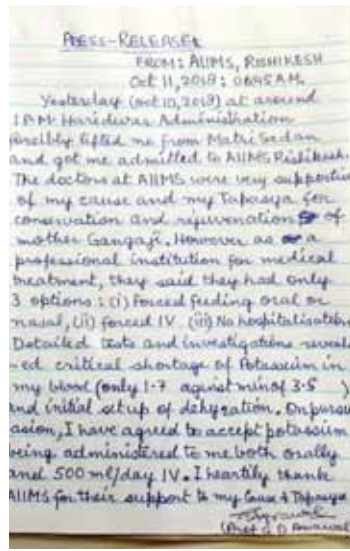 PRESS-RELEASE
FROM: AIIMS, RISHIKESH
Oct 11, 2018: 0645 A.M.
Yesterday (oct 10, 2018) at around
1 PM Haridwar Administration
forcibly lifted me from Matri Sadan
and got me admitted to AIIMS Rishikesh.
The doctors at AIIMS were very supportive
of my cause and my Tapasya for
conservation and rejuvenation of
mother Gangaji. However as a
professional institution for medical
treatment, they said they had only
3 options: (i) Forced feeding oral or
nasal, (ii) forced IV (iii) No hospitalisation
Detailed tests and investigations reveal-
-ed critical shortage of Potassium in
my blood (only 1.7 against min of 3.5 )
and initial setup of dehydration. On persu
asion, I have agreed to accept potassium
being administered to me both orally
and 500 ml/day IV. I heartily thank
AIIMS for their support to my cause & Tapasya
(Prof G D Agrawal)